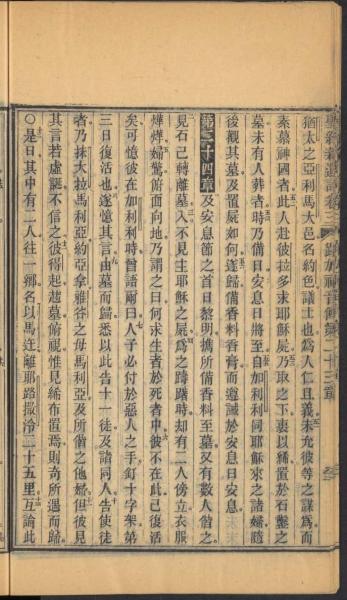 猶太之亞利馬大邑名約色議士也爲人仁且義未允彼等之謀爲而
素慕神國者此人赴彼拉多求耶穌屍乃取之下裹以絺置於石鑿之
墓未有人葬者時乃備日安息日將至自加利利同耶穌來之諸婦隨
後觀其墓及置屍如何遂歸備香料香膏而遵誡於安息日安息
第二十四章 及安息節之首日黎明攜所備香料至墓又有數人偕之
見石已轉離墓入不見主耶穌之屍爲之躊躇時却有二人傍立衣服
燁燁婦驚俯面向地乃謂之曰何求生者於死者中彼不在此已復活
矣可憶彼在加利利時曾語爾曰人子必付於惡人之手釘十字架第
三日復活也遂憶其言由墓而歸悉以此告十一徒及諸同人告使徒
者乃抹大拉馬利亞約亞拿雅各之母馬利亞及所偕之他婦但彼見
其言若虛誕不信之彼得起趨墓俯視惟見絺布置焉則奇所遇而歸
○是日其中有二人往一鄉名以馬迕離耶路撒冷二十五里互論此